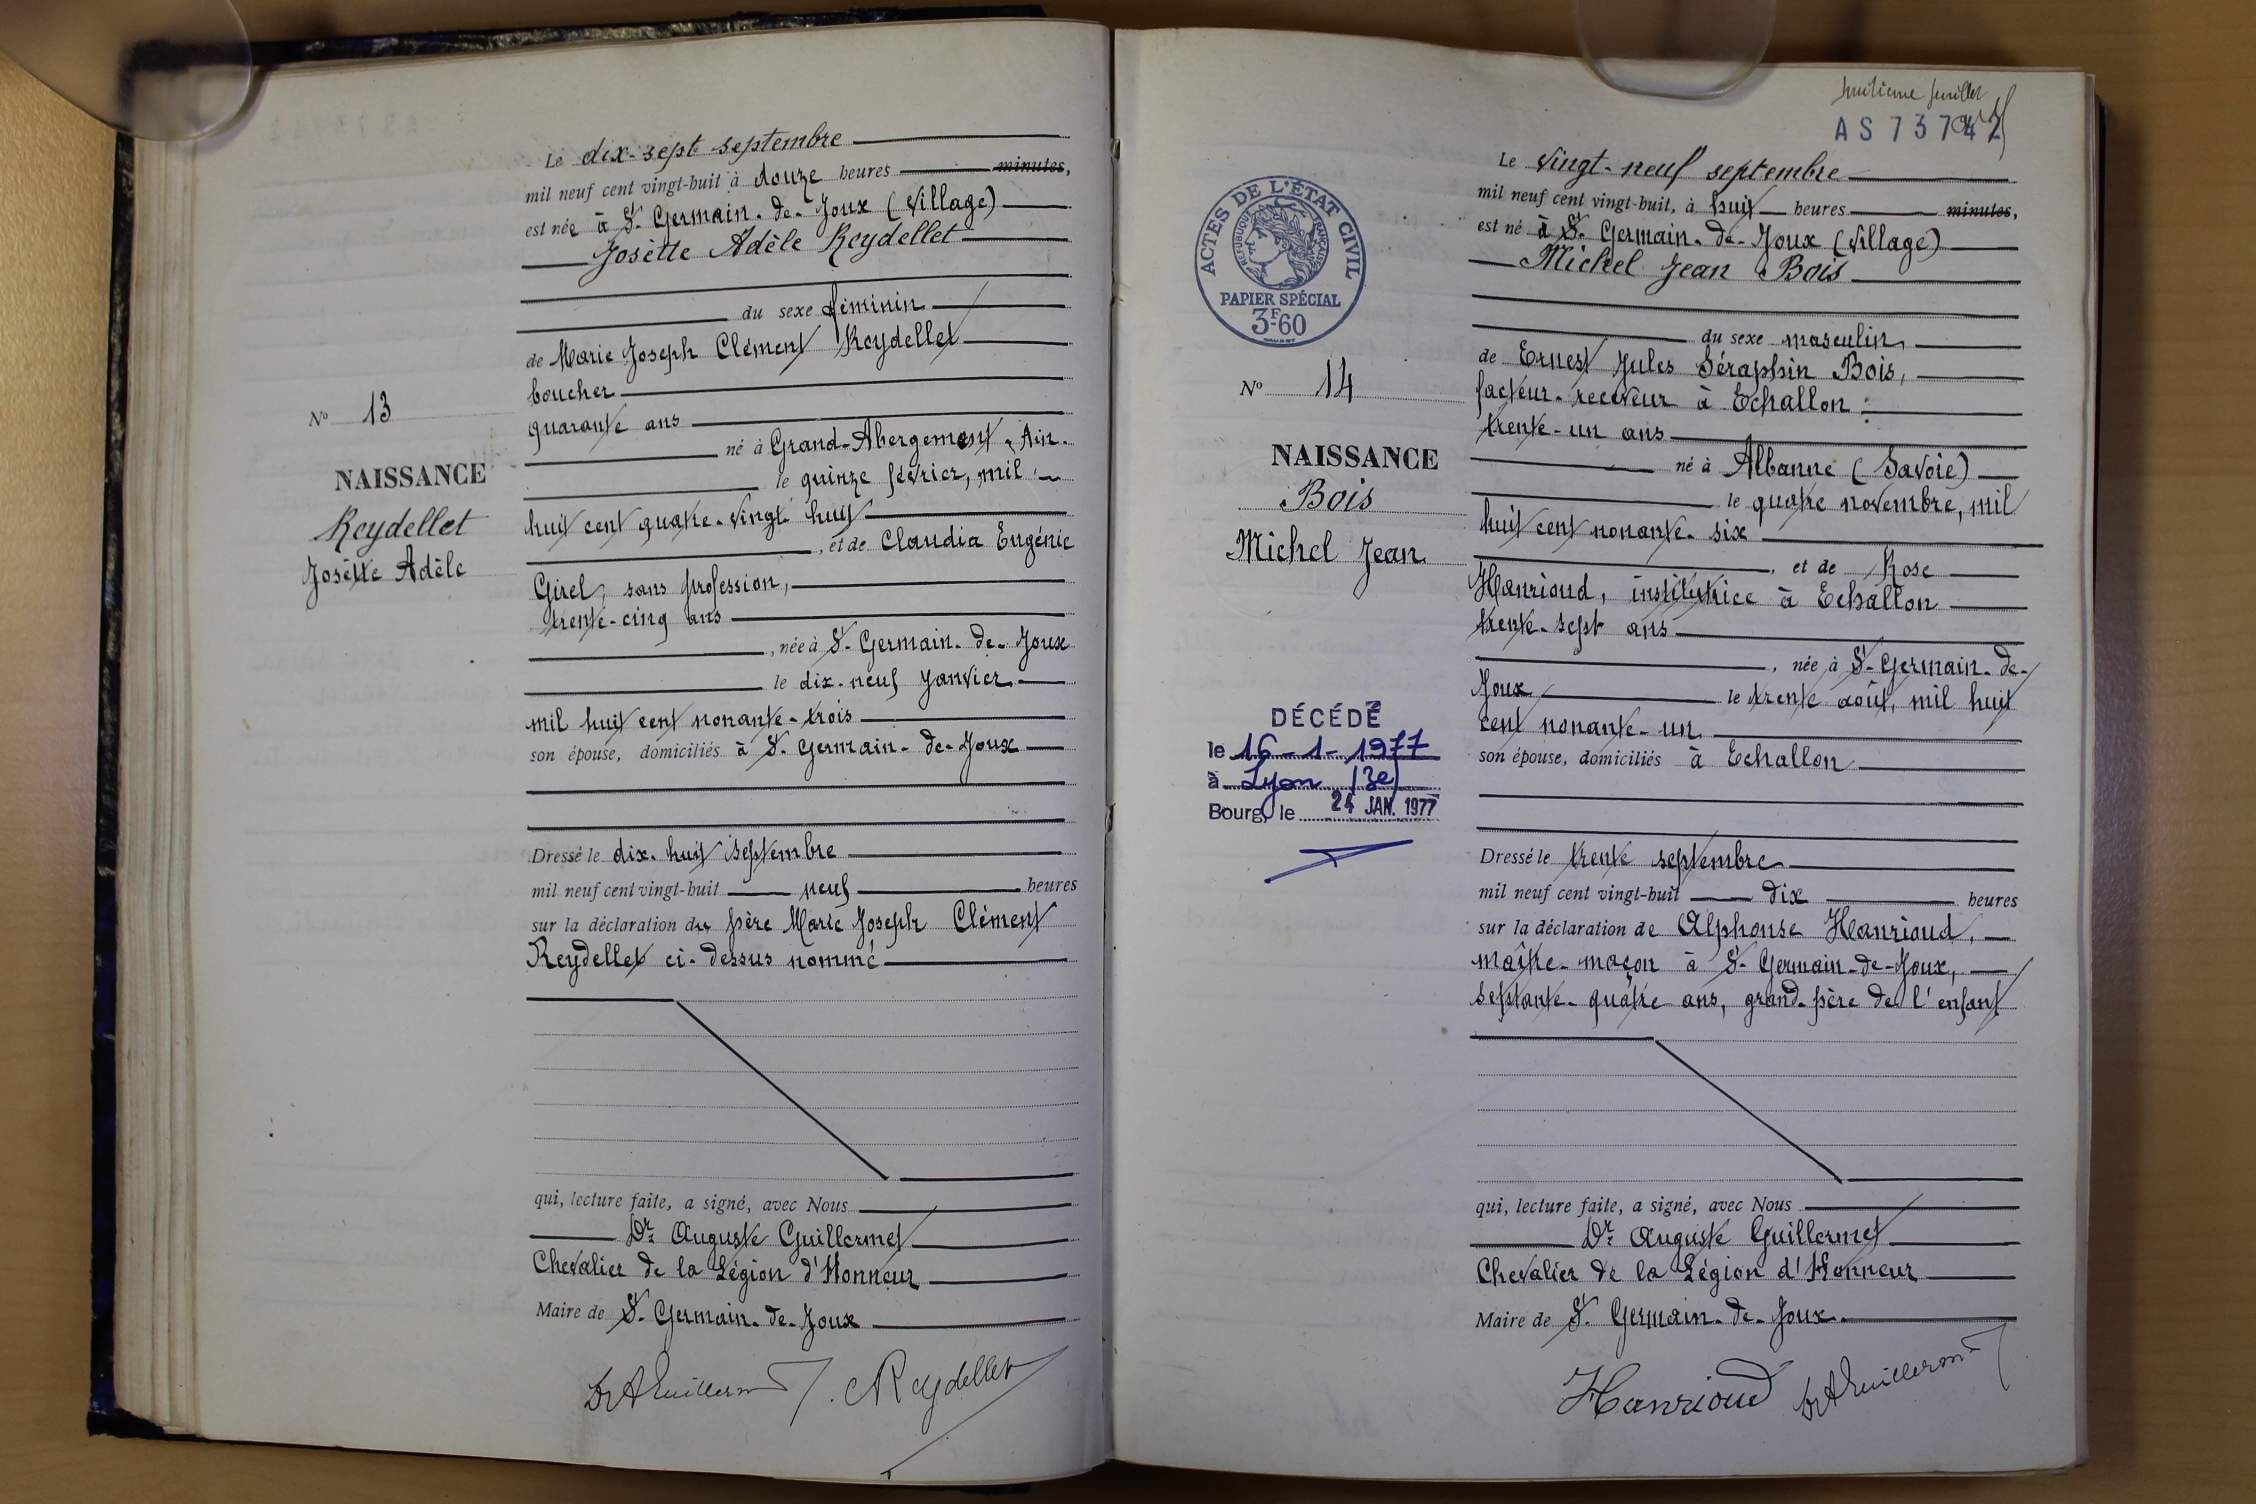 Le dix-sept septembre
mil neuf cent vingt-huit à douze heures minutes,
est née à St Germain-de-Joux (Village)
Josette Adèle Reydellet
du sexe féminin
de Marie Joseph Clément Reydellet
boucher
quarante ans
né à Grand-Abergement, Ain.
le quinze février, mil
huit cent quatre-vingt huit
, et de Claudia Eugénie
Girel, sans profession,
trente-cinq ans
, née à St Germain-de-Joux
le dix-neuf janvier
mil huit cent nonante-trois
son épouse, domiciliés à St Germain-de-Joux
N° 13
NAISSANCE
Reydellet
Josette Adèle
Dressé le dix-huit septembre
mil neuf cent vingt-huit neuf heures
sur la déclaration du père Marie Joseph Clément
Reydellet ci-dessus nommé
qui, lecture faite, a signé, avec Nous
Dr Auguste Guillermet
Chevalier de la Légion d'Honneur
Maire de St Germain-de-Joux
Dr A Guillermet Reydellet
huitième feuillet
AS 73742
Le vingt-neuf septembre
mil neuf cent vingt-huit, à huit heures minutes,
est né à St Germain-de-Joux (Village)
Michel Jean Bois
du sexe masculin
de Ernest Jules Séraphin Bois,
facteur-receveur à Echallon
trente-un ans
né à Albanne (Savoie)
le quatre novembre, mil
huit cent nonante-six
, et de Rose
Hanrioud, institutrice à Echallon
trente-sept ans
, née à St Germain-de-
Joux le trente août, mil huit
cent nonante-un
son épouse, domiciliés à Echallon
ACTES DE L'ÉTAT CIVIL
RÉPUBLIQUE FRANÇAISE
PAPIER SPÉCIAL
3F60
N° 14
NAISSANCE
Bois
Michel Jean
DÉCÉDÉ
le 16-1-1977
à Lyon (3e)
Bourg, le 24 JAN. 1977
Dressé le trente septembre
mil neuf cent vingt-huit dix heures
sur la déclaration de Alphonse Hanrioud,
maître-maçon à St Germain-de-Joux,
septante-quatre ans, grand-père de l'enfant
qui, lecture faite, a signé, avec Nous
Dr Auguste Guillermet
Chevalier de la Légion d'Honneur
Maire de St Germain-de-Joux
Hanrioud Dr A Guillermet